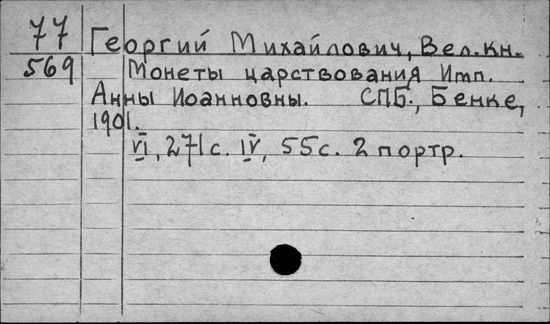 77 Георгий Михайлович, Вел. кн.
569 Монеты царствования Имп.
Анны Иоанновны. СПБ., Бенке,
1901.
VI, 271 с. IV, 55 с. 2 портр.